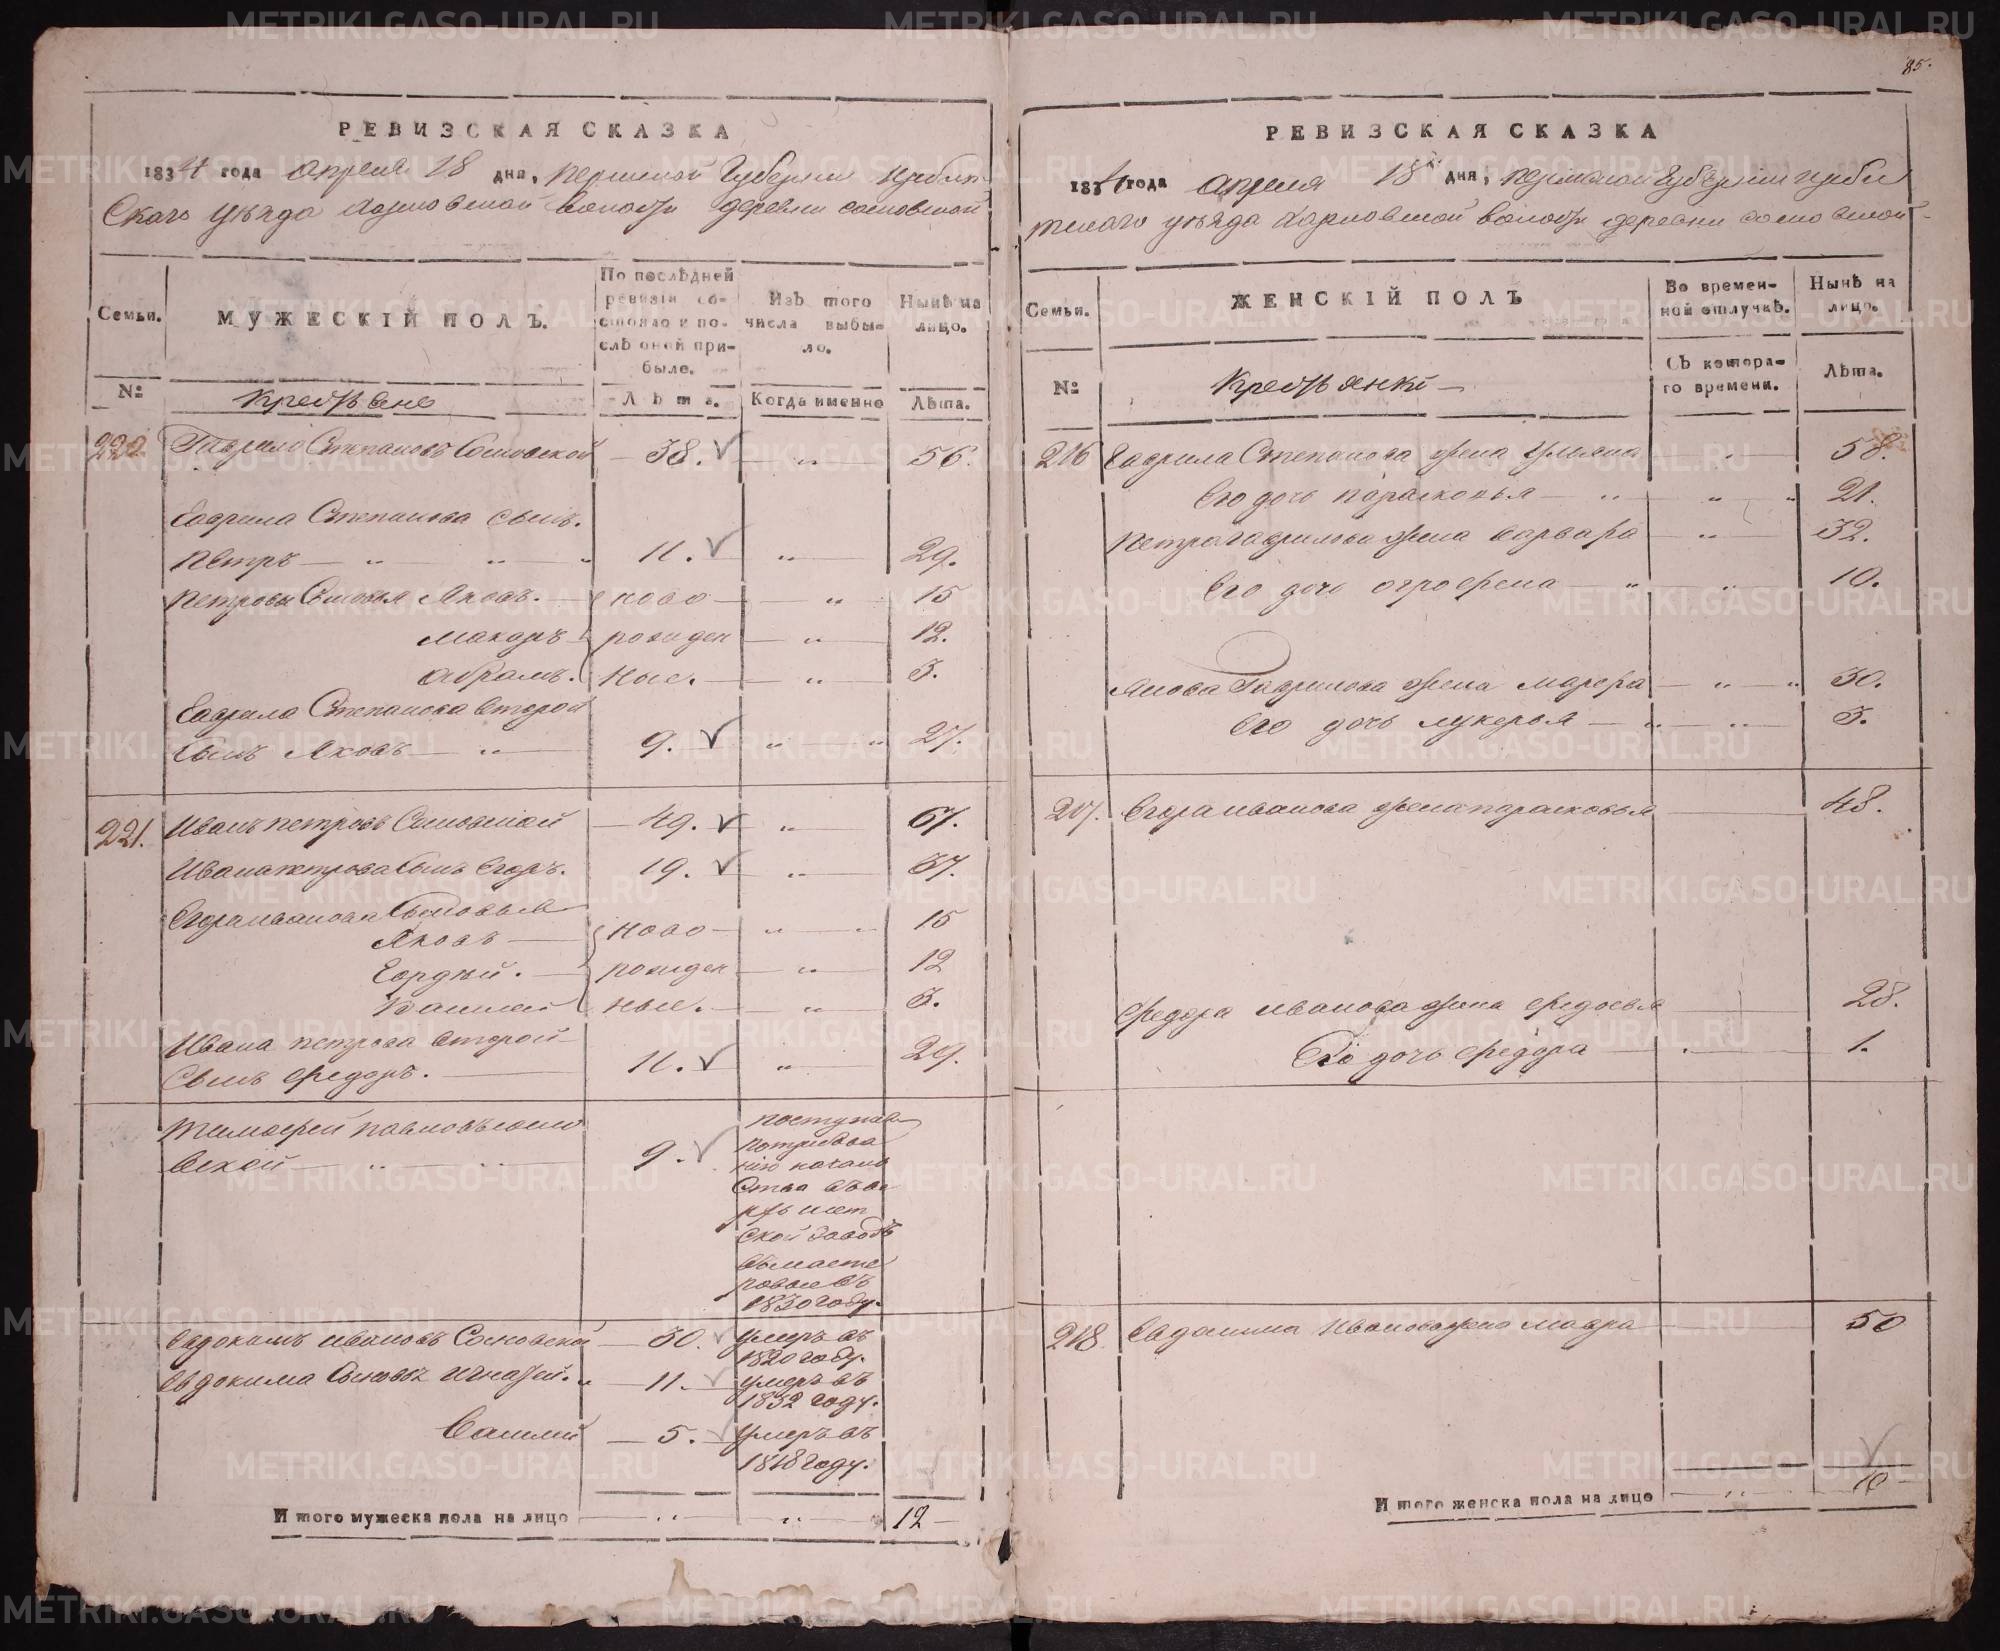 85.
РЕВИЗСКАЯ СКАЗКА
1834 года апреля 18 дня, пермской Губернии Ирбит
скаго уѣзда волости деревни сосновской
Семьи.
МУЖЕСКІЙ ПОЛЪ.
По послѣдней
ревизіи со-
стояло и по-
слѣ оной при-
было.
Изъ того
числа выбы-
ло.
Нынѣ на
лицо.
№
Крестьяне
Лѣта.
Когда именно
Лѣта.
220 Гаврило Степановъ Сосновской 38. 56.
Гаврила Степанова сынъ.
Петръ 11. 29.
Петровы Сыновья Яковъ. ново 15
Макаръ рожден 12.
Абрамъ. ные. 3.
Гаврила Степанова второй
Сынъ Яковъ 9. 27.
221. Иванъ петровъ Сосновской 49. 67.
Ивана петрова Сынъ Егоръ. 19. 37.
Егора иванова Сыновья
Яковъ ново 15
Гордѣй. рожден 12
Василей ные. 3.
Ивана петрова второй
Сынъ федоръ. 11. 29.
Тимофей павловъ сосно
вской 9.
поступил
ской заводъ
въ мастеровые въ
1830 году.
Евдокимъ ивановъ Сосновской 30. умеръ въ
1820 году.
Евдокима Сыновья игнатей. 11. умеръ въ
1832 году.
Василий 5. умеръ въ
1818 году.
Итого мужеска пола на лицо 12
РЕВИЗСКАЯ СКАЗКА
1834 года апреля 18 дня, пермской губернии ирби
тскаго уѣзда волости деревни сосновской
Семьи.
ЖЕНСКІЙ ПОЛЪ
Во времен-
ной отлучкѣ.
Нынѣ на
лицо.
№
Крестьянки
Съ котора-
го времени.
Лѣта.
216 Гаврила Степанова жена Ульяна 58.
Его дочь парасковья 21.
Петра гаврилова жена варвара 32.
Его дочь огрофена 10.
Якова Гаврилова жена марфа 30.
Его дочь лукерья 3.
217. Егора иванова жена парасковья 48.
федора иванова жена федосья 28.
Его дочь федора 1.
218. Евдокима Иванова жена мавра 50
Итого женска пола на лицо 10
METRIKI.GASO-URAL.RU